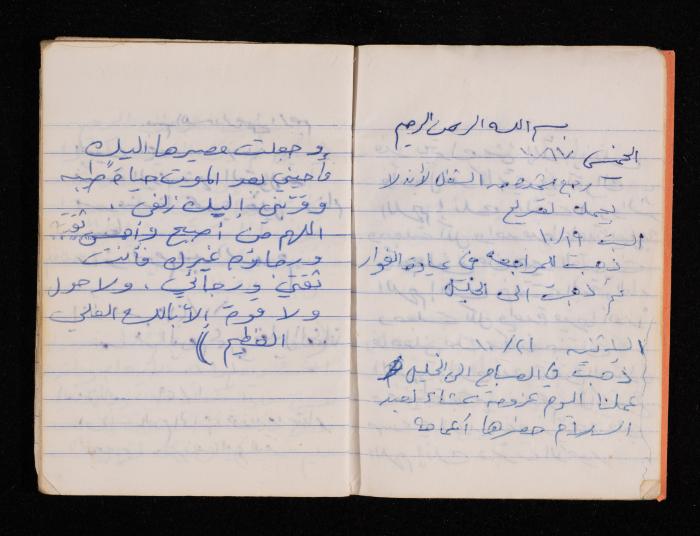 بسم الله الرحمن الرحيم
الخميس ١٠/١٧
رجع من الشغل لأنه لا
يحمل تصريح
السبت ١٠/١٩
ذهبت للمراجعة في عيادة الفوار
ثم ذهبت الى الخليل
١٠/٢١
ذهبت في الصباح الى الخليل
عملنا اليوم عزومة عشاء لعبد
السلام حضرها أعمامه
وجعلت مصيرها إليك
فأحيني بعد الموت حياةً طيبه
وقربني إليك زلفى.
اللهم من أصبح وأمسى ثقته
ورجاؤه غيرك فأنت
ثقتي ورجائي، ولا حول
ولا قوة إلا بالله العلي
العظيم)